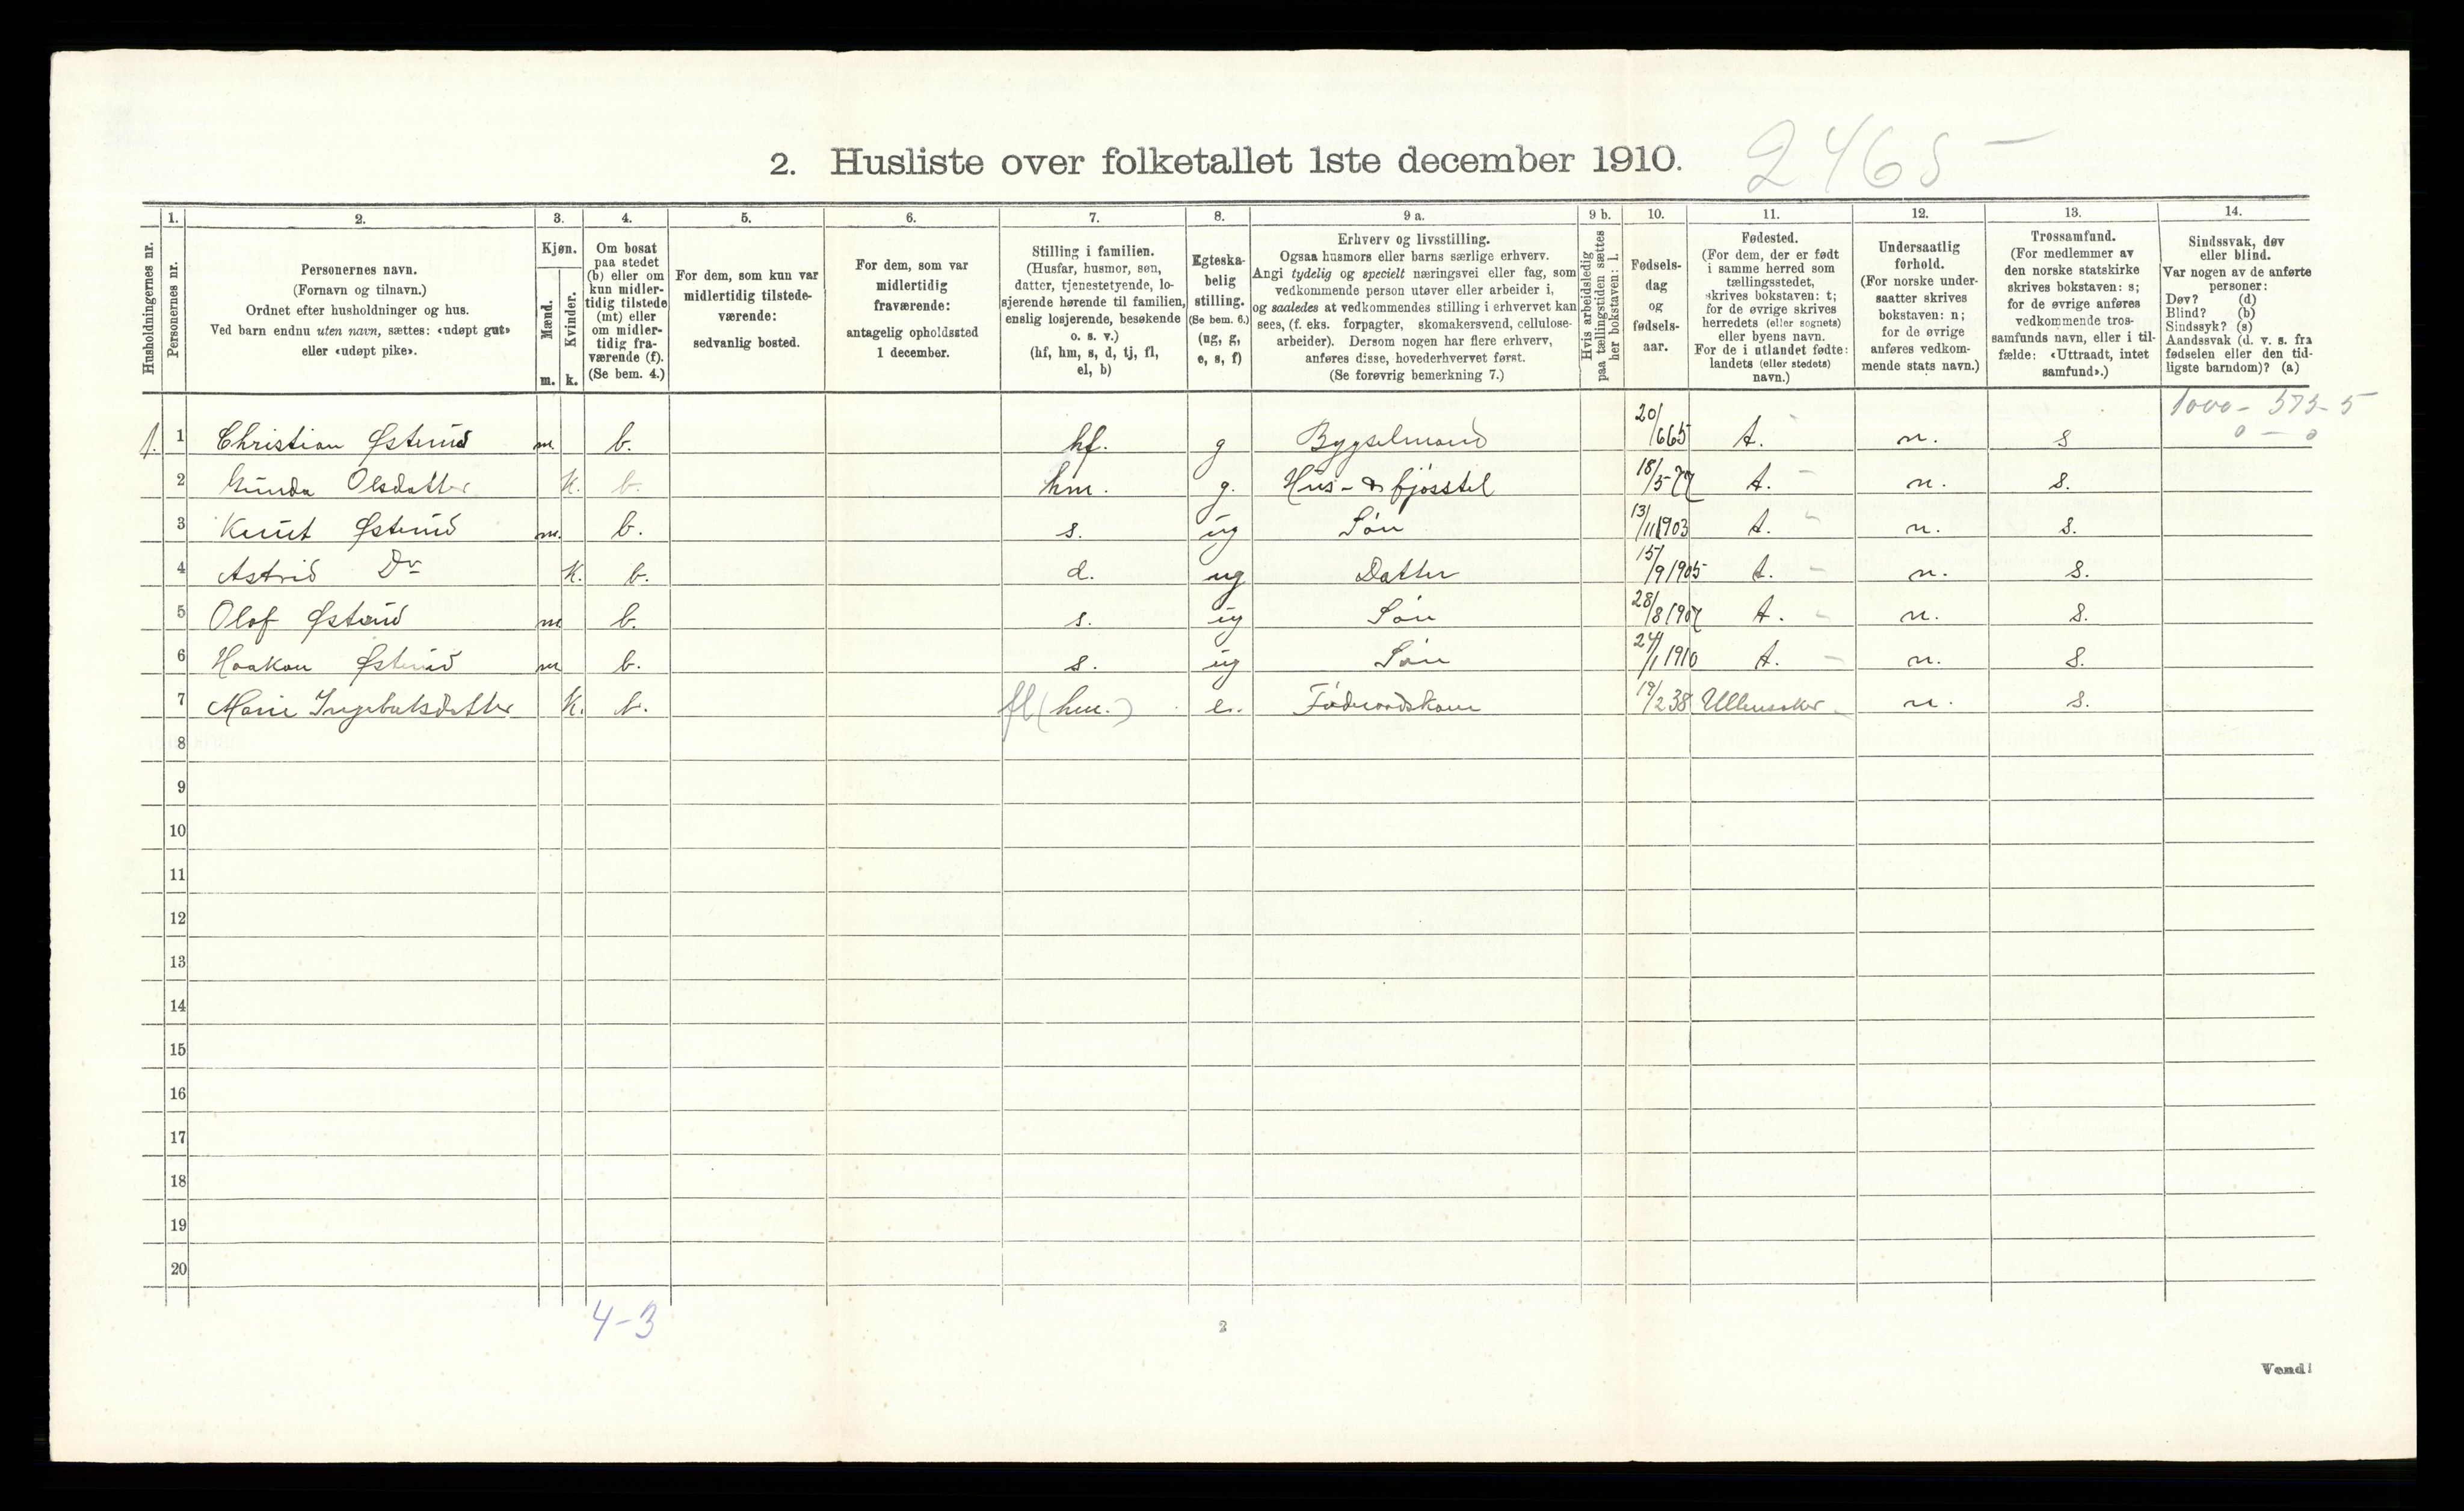 2. Husliste over folketallet 1ste december 1910. 2465 –
1. 2. 3. 4. 5. 6. 7. 8. 9 a. 9 b. 10. 11. 12. 13. 14.
Husholdningernes nr.
Personernes nr.
Personernes navn.
(Fornavn og tilnavn.)
Ordnet efter husholdninger og hus.
Ved barn endnu uten navn, sættes: «udøpt gut»
eller «udøpt pike».
Kjøn.
Mænd.
Kvinder.
m. k.
Om bosat
paa stedet
(b) eller om
kun midler-
tidig tilstede
(mt) eller
om midler-
tidig fra-
værende (f).
(Se bem. 4.)
For dem, som kun var
midlertidig tilstede-
værende:
sedvanlig bosted.
For dem, som var
midlertidig
fraværende:
antagelig opholdssted
1 december.
Stilling i familien.
(Husfar, husmor, søn,
datter, tjenestetyende, lo-
sjerende hørende til familien,
enslig losjerende, besøkende
o. s. v.)
(hf, hm, s, d, tj, fl,
el, b)
Egteska-
belig
stilling.
(Se bem. 6.)
(ug, g,
e, s, f)
Erhverv og livsstilling.
Ogsaa husmors eller barns særlige erhverv.
Angi tydelig og specielt næringsvei eller fag, som
vedkommende person utøver eller arbeider i,
og saaledes at vedkommendes stilling i erhvervet kan
sees, (f. eks. forpagter, skomakersvend, cellulose-
arbeider). Dersom nogen har flere erhverv,
anføres disse, hovederhvervet først.
(Se forøvrig bemerkning 7.)
Hvis arbeidsledig
paa tællingstiden sættes
her bokstaven: l.
Fødsels-
dag
og
fødsels-
aar.
Fødested.
(For dem, der er født
i samme herred som
tællingsstedet,
skrives bokstaven: t;
for de øvrige skrives
herredets (eller sognets)
eller byens navn.
For de i utlandet fødte:
landets (eller stedets)
navn.)
Undersaatlig
forhold.
(For norske under-
saatter skrives
bokstaven: n;
for de øvrige
anføres vedkom-
mende stats navn.)
Trossamfund.
(For medlemmer av
den norske statskirke
skrives bokstaven: s;
for de øvrige anføres
vedkommende tros-
samfunds navn, eller i til-
fælde: «Uttraadt, intet
samfund».)
Sindssvak, døv
eller blind.
Var nogen av de anførte
personer:
Døv? (d)
Blind? (b)
Sindssyk? (s)
Aandssvak (d. v. s. fra
fødselen eller den tid-
ligste barndom)? (a)
1000 – 575 – 5
0 – 0
1. 1 Christian Østerud m. b. hf. g Bygselmand 20/6 65 t. – n. s
2 Gunda Olsdatter K. b. hm. g. Hus- & fjøsstel 18/5-77 t. – n. s.
3 Knut Østerud m. b. s. ug Søn 13/11 1903 t. – n. s.
4 Astrid Do K. b. d. ug Datter 15/9 1905 t. – n. s.
5 Olaf Østerud m b. s. ug Søn 28/8 1907 t. – n. s.
6 Haakon Østerud m b. s. ug Søn 24/1 1910 t. – n. s.
7 Marie Ingebretsdatter K. b. fl (hm.) e. Føderaadskone 19/2 38 Ullensaker – n. s.
8
9
10
11
12
13
14
15
16
17
18
19
20
4–3
2
Vend!